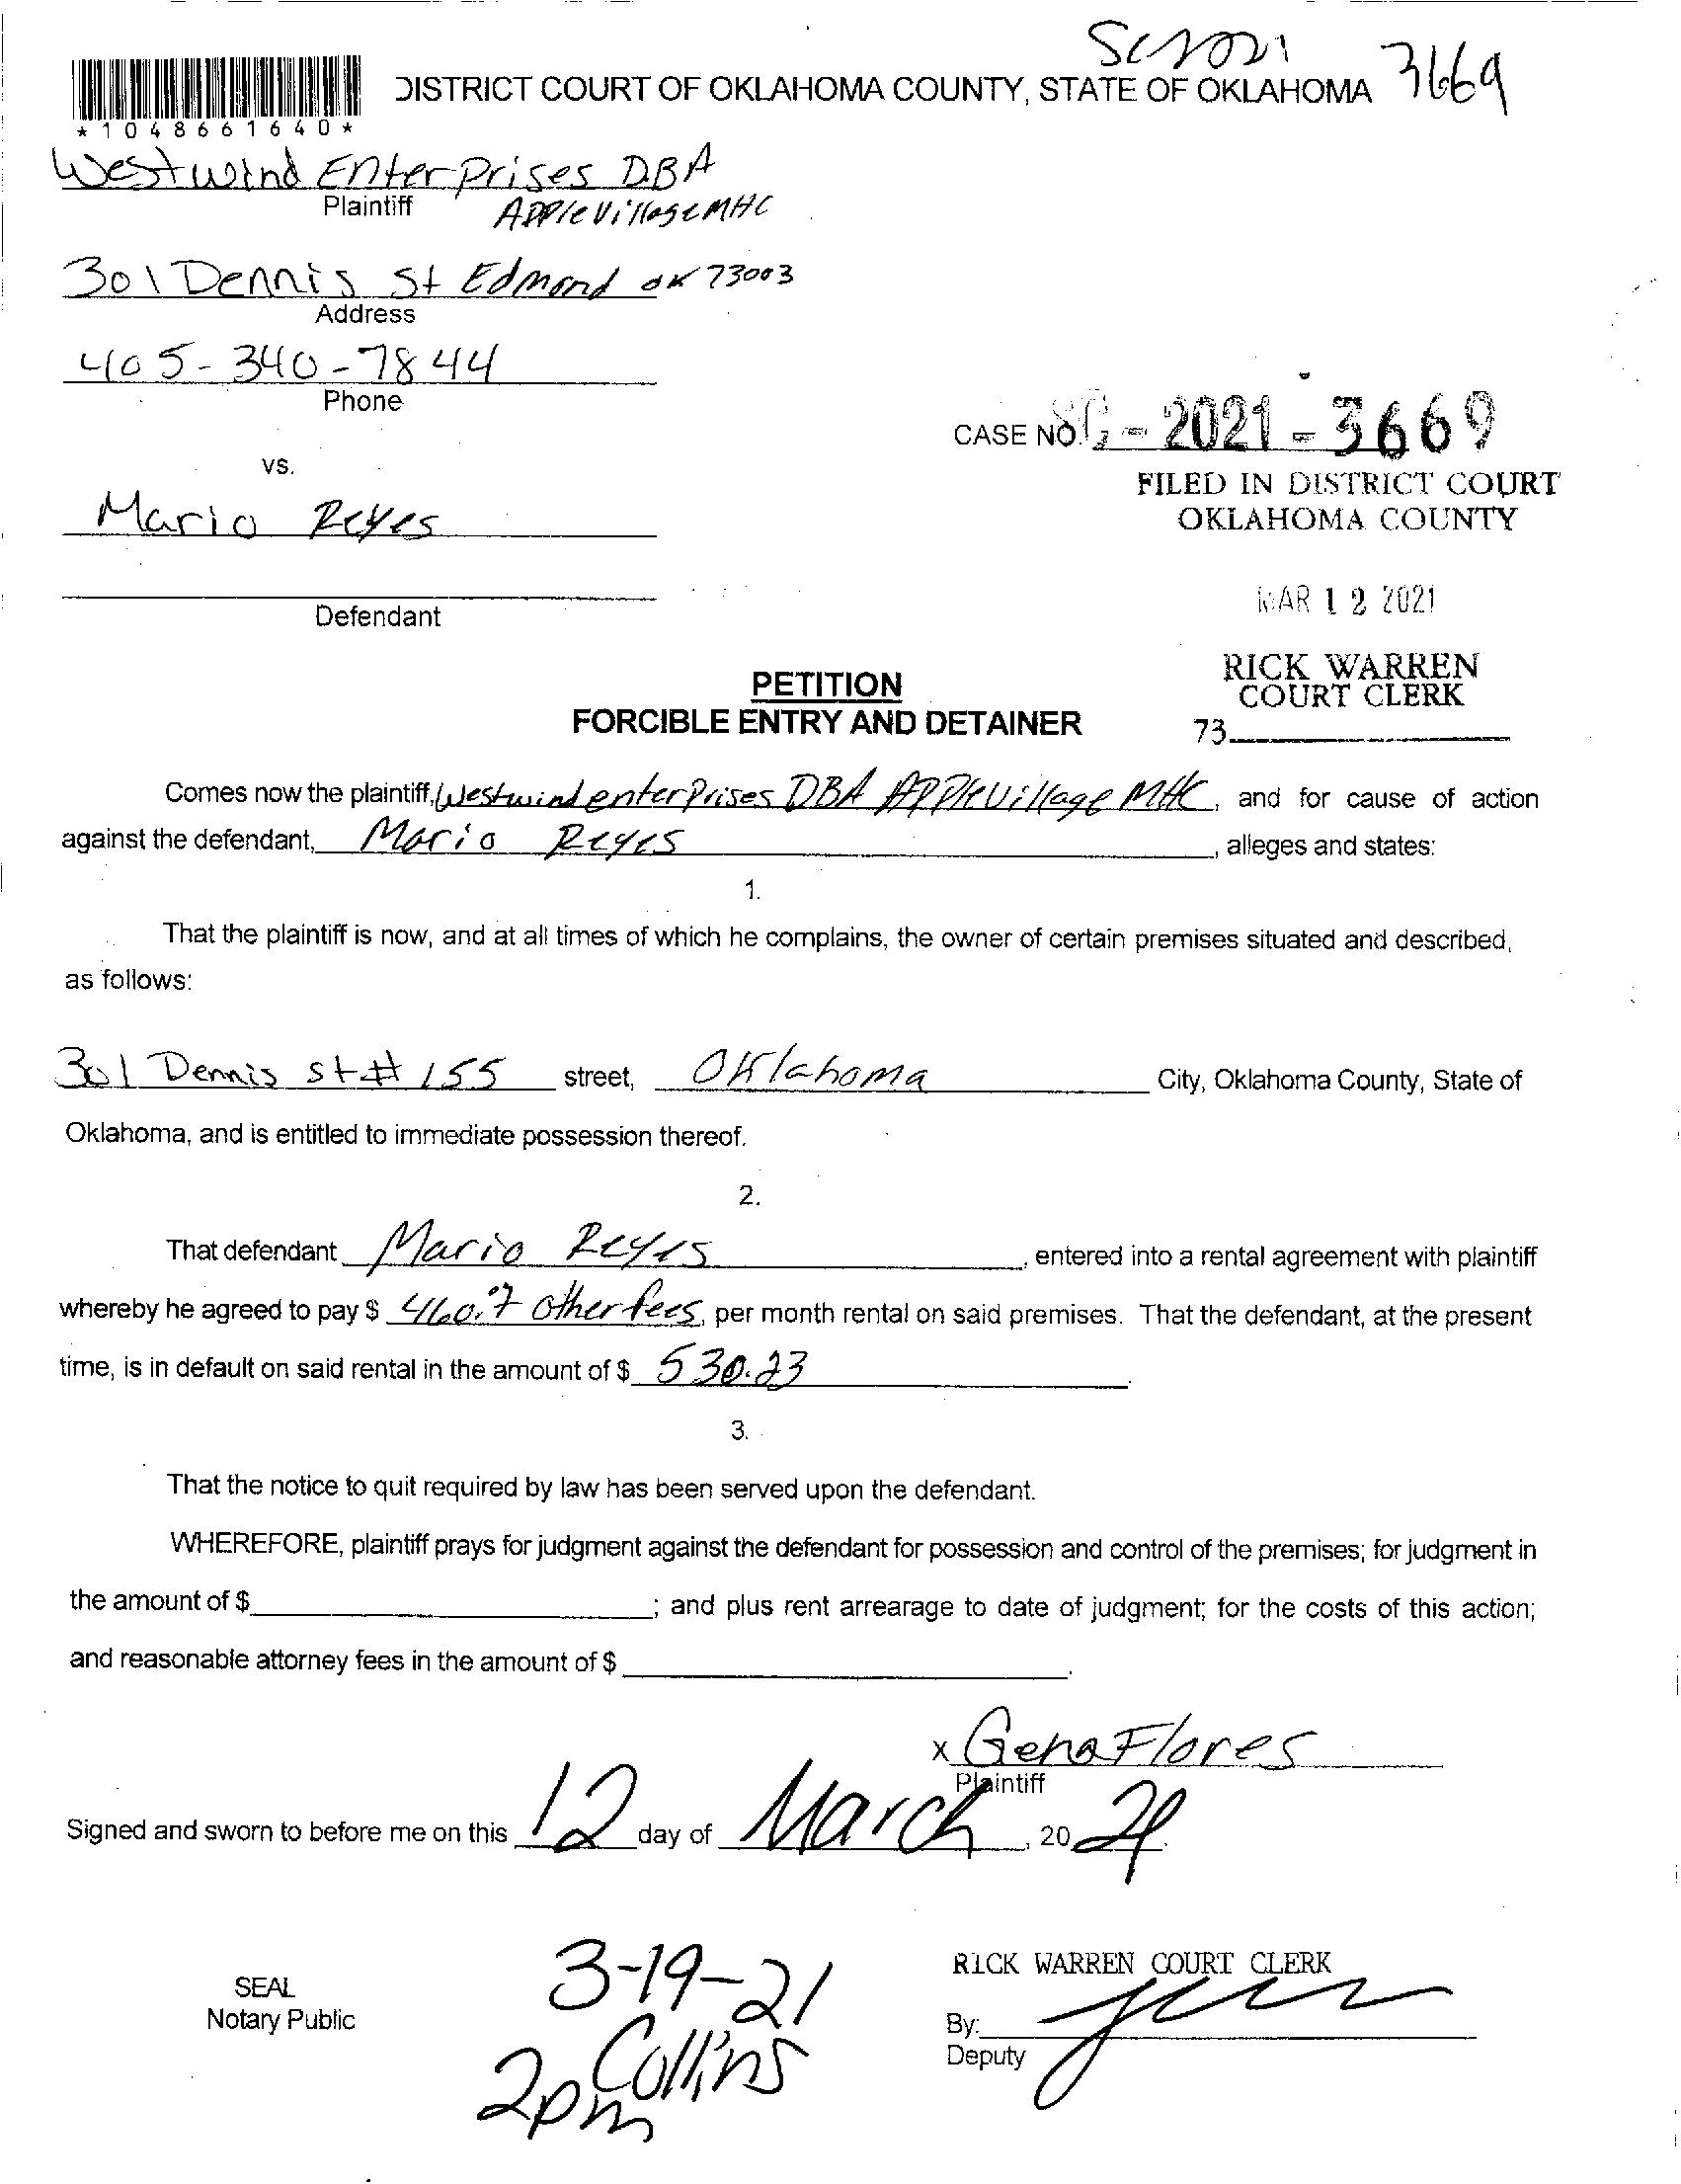 SC2021 3669
DISTRICT COURT OF OKLAHOMA COUNTY, STATE OF OKLAHOMA
*1048661640*
Westwind Enterprises DBA
Plaintiff AppleVillage MHC
301 Dennis St Edmond OK 73003
Address
405-340-7844
Phone
CASE NO. SC - 2021 - 3669
vs.
FILED IN DISTRICT COURT
OKLAHOMA COUNTY
Mario Reyes
MAR 12 2021
Defendant
RICK WARREN
COURT CLERK
73
PETITION
FORCIBLE ENTRY AND DETAINER
Comes now the plaintiff, Westwind enterprises DBA AppleVillage MHC, and for cause of action
against the defendant, Mario Reyes, alleges and states:
1.
That the plaintiff is now, and at all times of which he complains, the owner of certain premises situated and described,
as follows:
301 Dennis st # 155 street, Oklahoma City, Oklahoma County, State of
Oklahoma, and is entitled to immediate possession thereof.
2.
That defendant Mario Reyes, entered into a rental agreement with plaintiff
whereby he agreed to pay $ 460. + other fees, per month rental on said premises. That the defendant, at the present
time, is in default on said rental in the amount of $ 530.23.
3.
That the notice to quit required by law has been served upon the defendant.
WHEREFORE, plaintiff prays for judgment against the defendant for possession and control of the premises; for judgment in
the amount of $ ; and plus rent arrearage to date of judgment; for the costs of this action;
and reasonable attorney fees in the amount of $ .
x Gena Flores
Plaintiff
Signed and sworn to before me on this 12 day of March, 20 21.
3-19-21
Collins
2pm
SEAL
Notary Public
RICK WARREN COURT CLERK
By:
Deputy